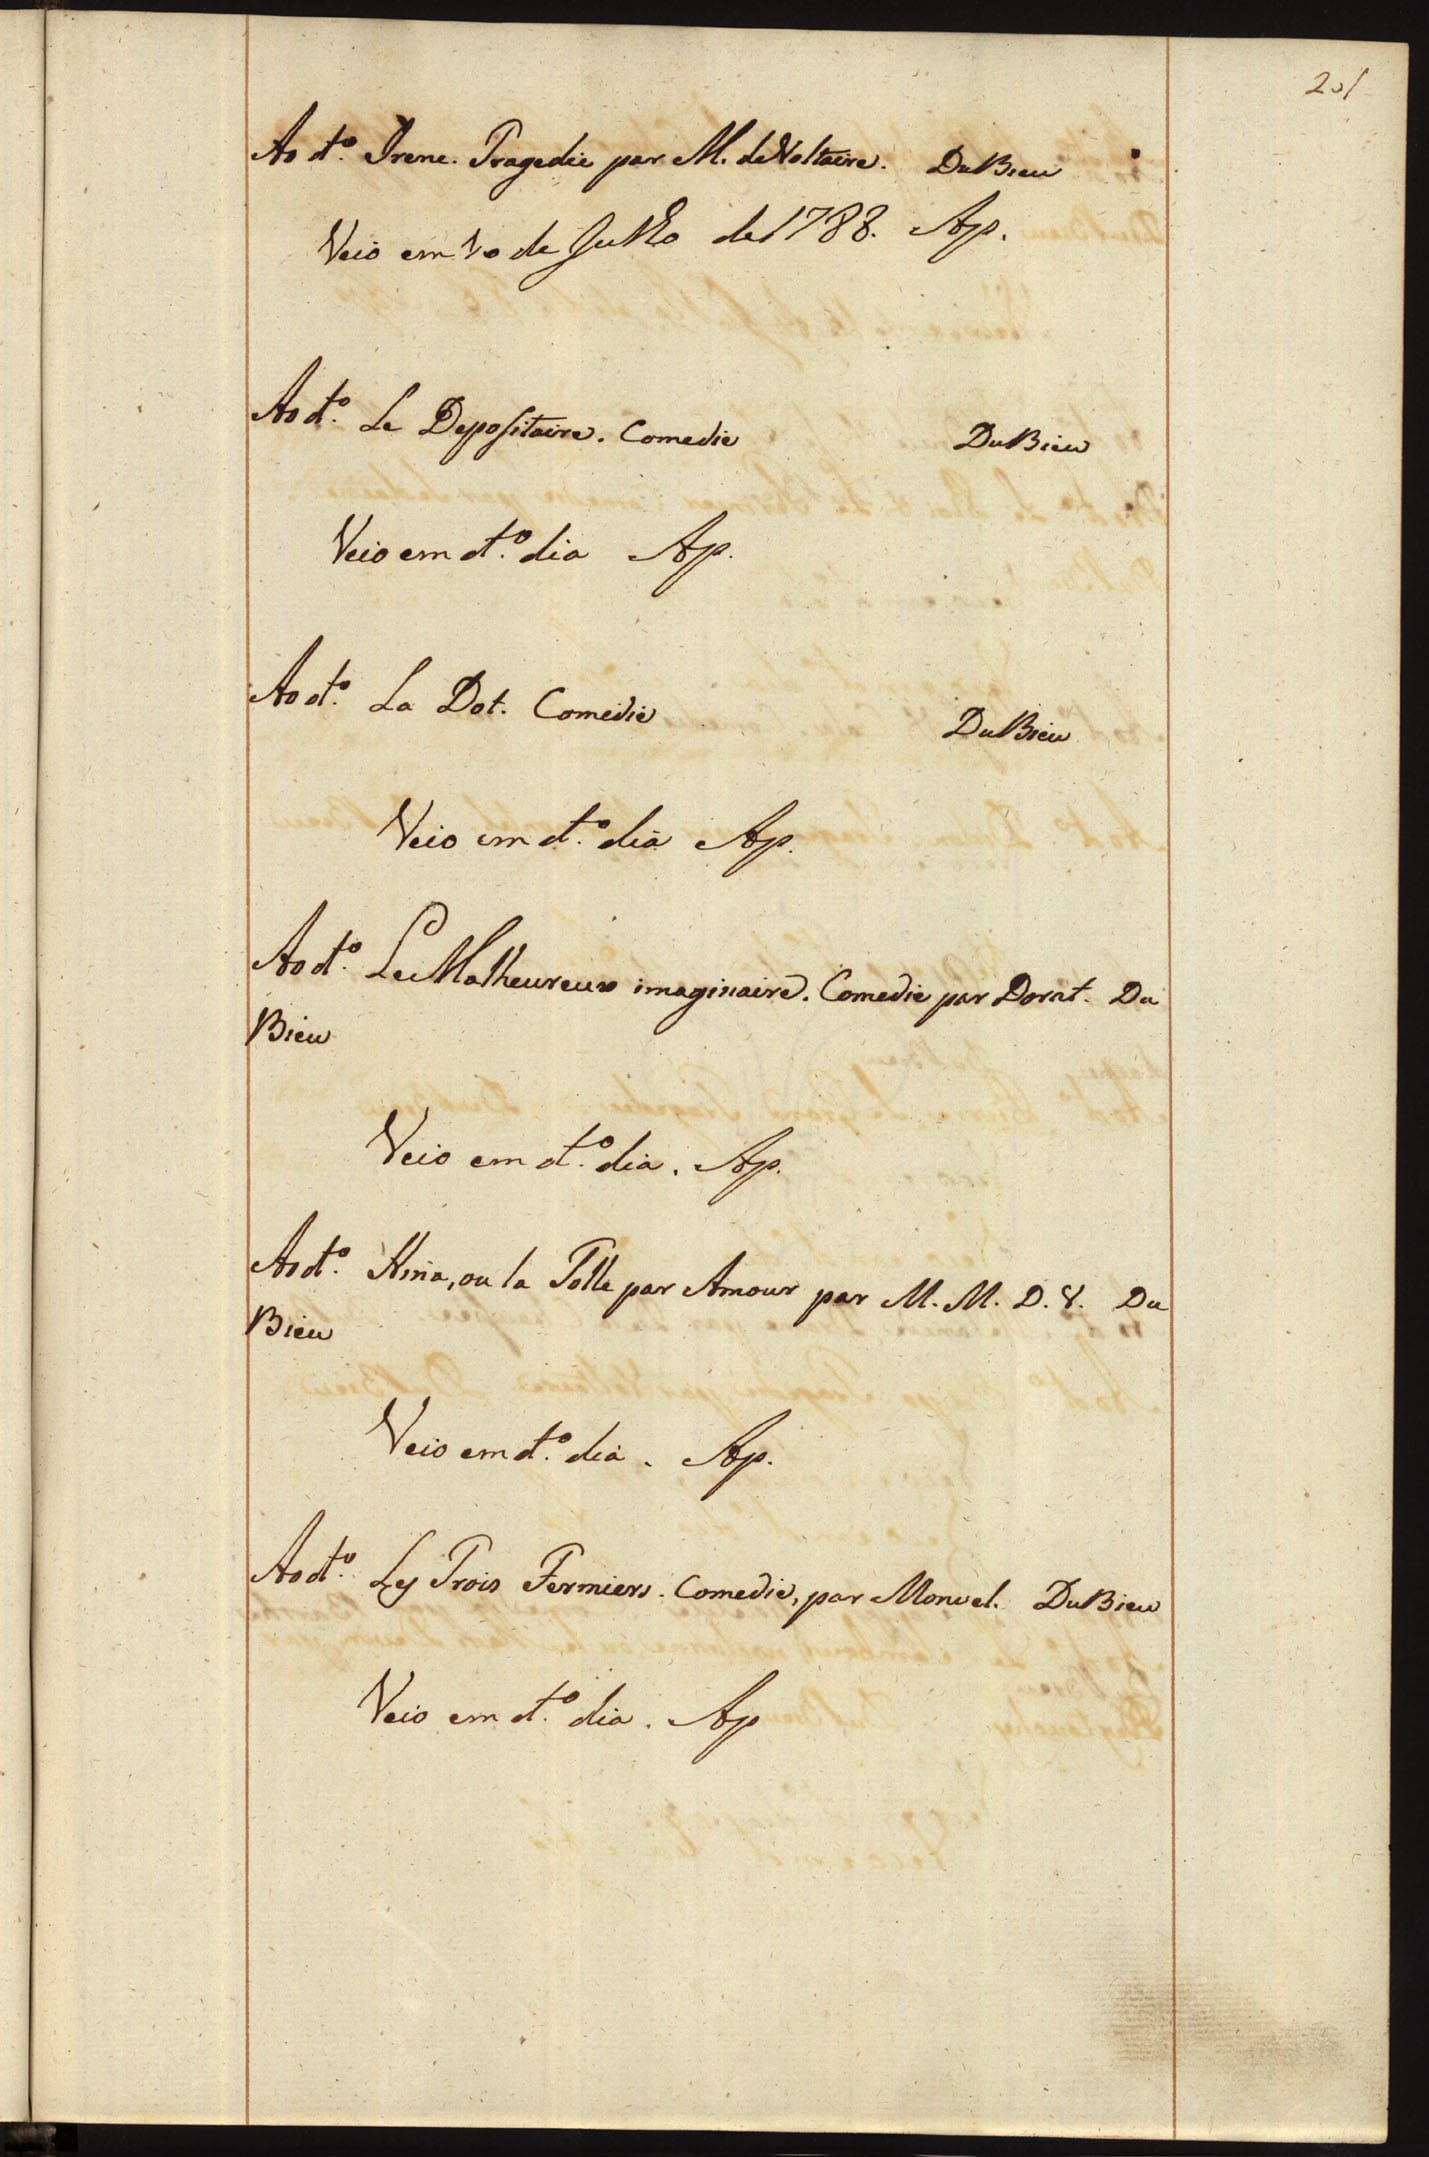 201
Ao dt.º Irene. Tragedie par M. de Voltaire. Du Bieu
Veio em 10 de Julho de 1788. Ap.
Ao dt.º Le Depositaire. Comedie Du Bieu
Veio em dt.º dia Ap.
Ao dt.º La Dot. Comedie Du Bieu
Veio em dt.º dia Ap.
Ao dt.º Le Malheureux imaginaire. Comedie par Dorat. Du
Bieu
Veio em dt.º dia. Ap.
Ao dt.º Nina, ou la Folle par Amour par M. M. D. V. Du
Bieu
Veio em dt.º dia. Ap.
Ao dt.º Les Trois Fermiers. Comedie, par Monvel. Du Bieu
Veio em dt.º dia. Ap